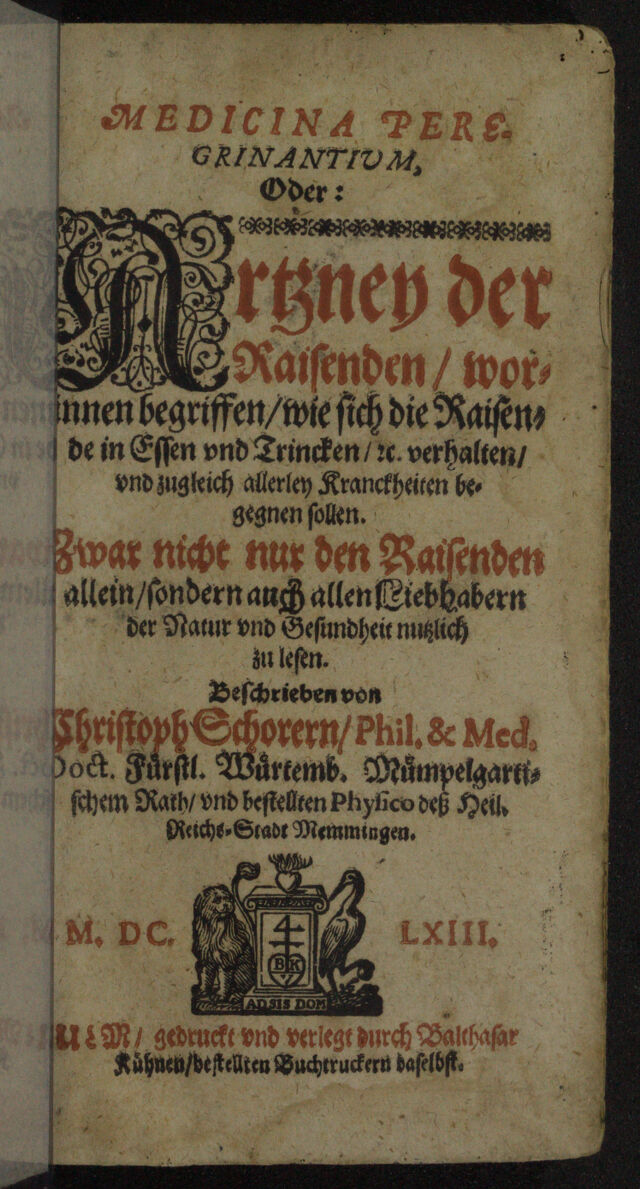 MEDICINA PERE-
GRINANTIVM,
Oder:
Artzney der
Raisenden / wor-
innen begriffen / wie sich die Raisen-
de in Essen vnd Trincken / ꝛc. verhalten /
vnd zugleich allerley Kranckheiten be-
gegnen sollen.
Zwar nicht nur den Raisenden
allein / sondern auch allen Liebhabern
der Natur vnd Gesundheit nutzlich
zu lesen.
Beschrieben von
Christoph Schorern / Phil. & Med.
Doct. Fürstl. Würtemb. Mümpelgarti-
schem Rath / vnd bestellten Physico deß Heil.
Reichs-Stadt Memmingen.
M. DC. LXIII.
BK
ADSIS DOM
ULM / gedruckt vnd verlegt durch Balthasar
Kühnen / bestellten Buchtruckern daselbst.